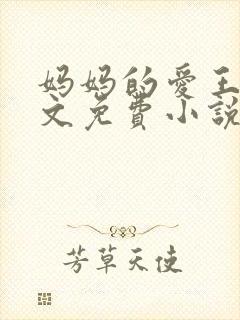 妈妈的爱王
文免费小说
芳草天使